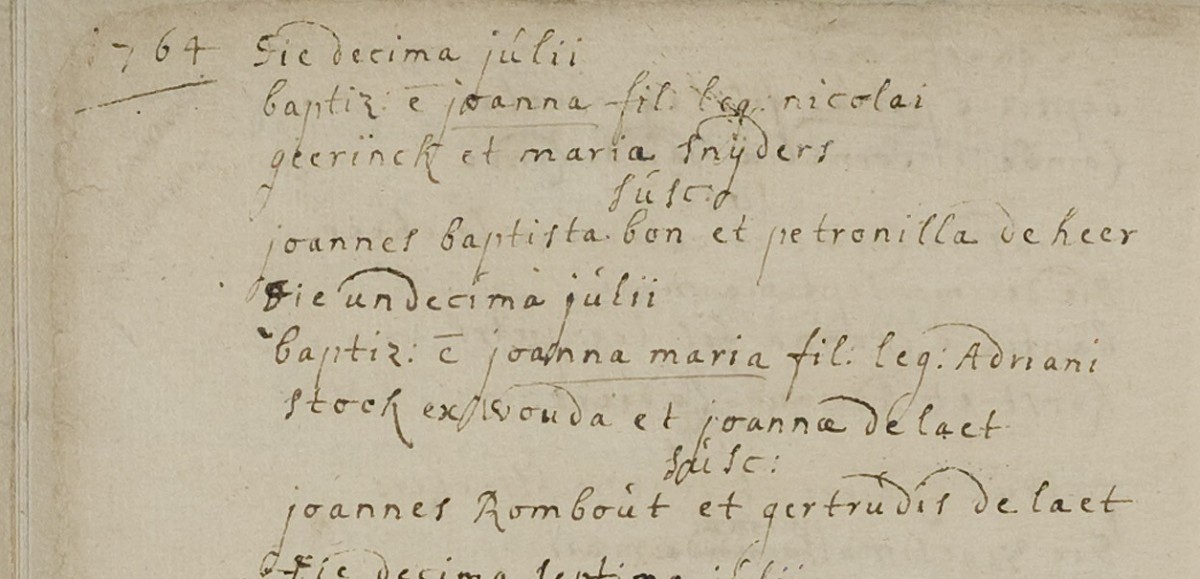 1764 Die decima júlii
baptiz: ē joanna fil: leg: nicolai
geerinck et maria snÿders
súsc:
joannes baptista bon et petronilla de heer
Die undecima júlii
baptiz: ē joanna maria fil: leg: Adriani
stock ex wouda et joannæ de laet
súsc:
joannesRomboút et gertrudis de laet
Die decima septima júlii